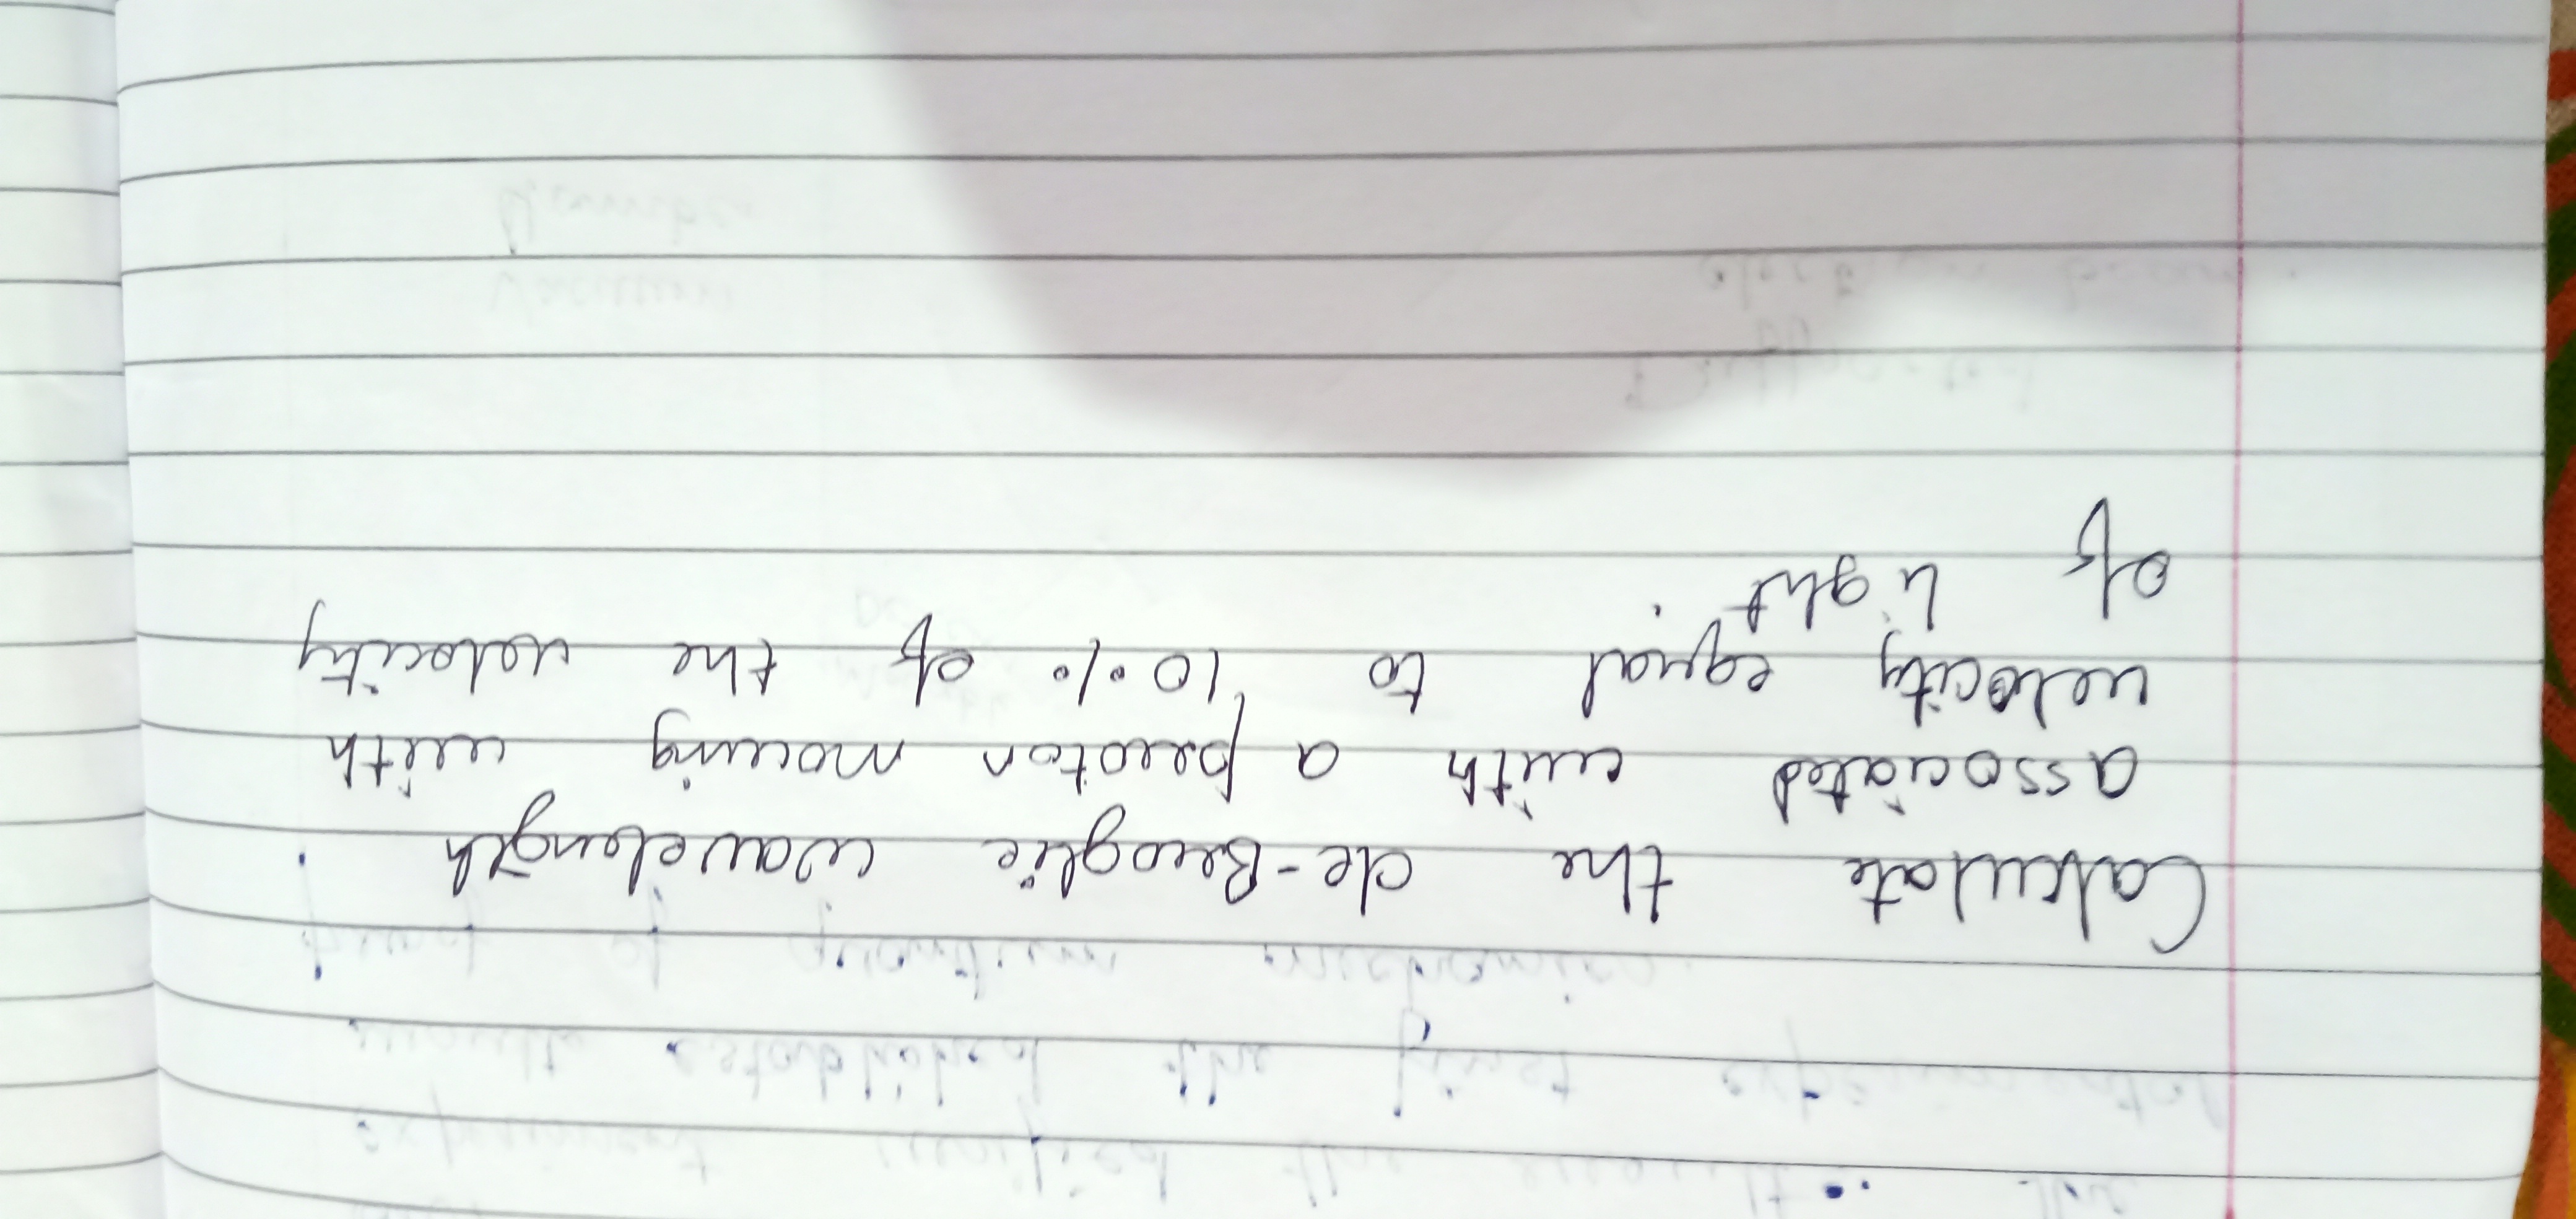 Calculate the de-Broglie wavelength
associated with a proton moving with
velocity equal to 10% of the velocity
of light.